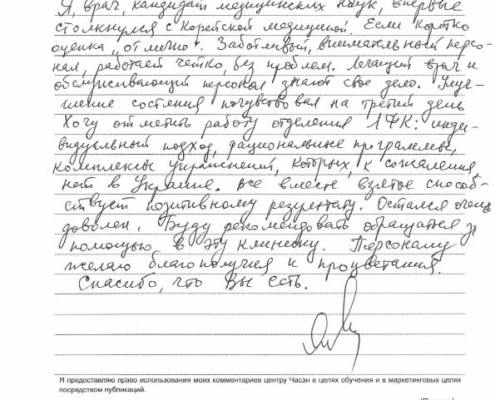 Я, врач, кандидат медицинских наук, впервые
столкнулся с Корейской медициной. Если коротко
оценка „отлично“. Заботливый, внимательный персо-
нал, работает чётко, без проблем. Лечащий врач и
обслуживающий персонал знают свое дело. Улуч-
шение состояния почувствовал на третий день
Хочу отметить работу отделения ЛФК: инди-
видуальный подход, рациональные программы,
комплексы упражнений, которых, к сожалению
нет в Украине. Все вместе взятое способ-
ствует позитивному результату. Остался очень
доволен. Буду рекомендовать обращаться за
помощью в эту клинику. Персоналу
желаю благополучия и процветания.
Спасибо, что Вы есть.
Я предоставляю право использования моих комментариев центру Часэн в целях обучения и в маркетинговых целях
посредством публикаций.